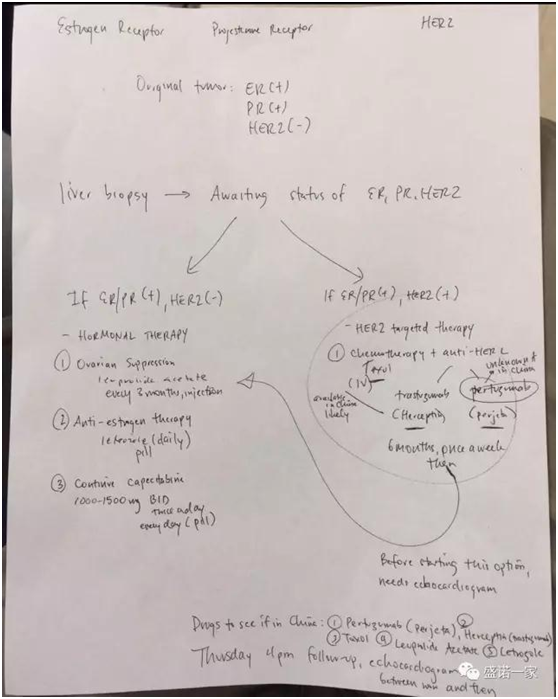 Estrogen Receptor Progesterone Receptor HER2
Original tumor: ER(+)
PR(+)
HER2(-)
liver biopsy → Awaiting status of ER, PR, HER2
If ER/PR(+), HER2(-)
- HORMONAL THERAPY
① Ovarian Suppression
leuprolide acetate
every 3 months, injection
② Anti-estrogen therapy
letrozole (daily)
pill
③ Continue capecitabine
1000-1500mg BID
twice a day
every day (pill)
If ER/PR(+), HER2(+)
- HER2 targeted therapy
① Chemotherapy + anti-HER2
Taxol
(IV)
available
in China
likely
trastuzumab
(Herceptin)
unknown if
in China
pertuzumab
(perjeta)
6 months, once a week
then
Before starting this option,
needs echocardiogram
Drugs to see if in China: ① Pertuzumab (Perjeta) ② Herceptin (trastuzumab)
③ Taxol ④ Leuprolide Acetate ⑤ Letrozole
Thursday 4pm followup, echocardiogram
between now and then
盛诺一家